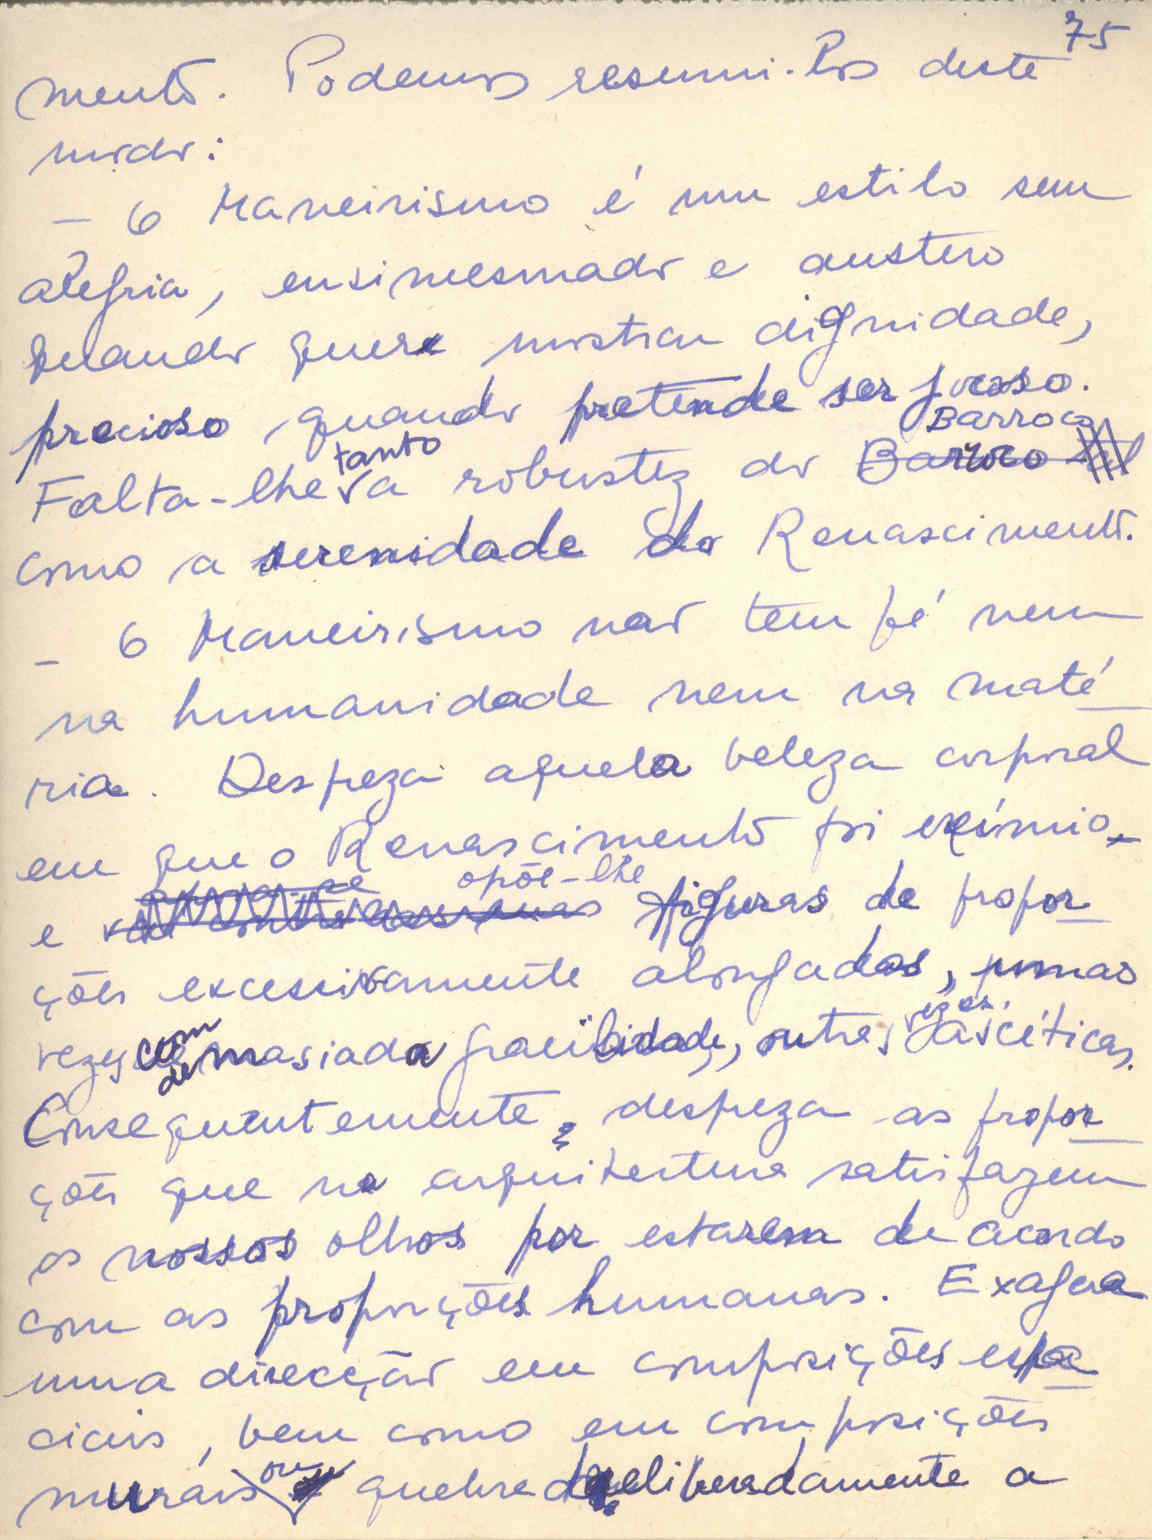 75
mento. Podemos resumi-los deste
modo:
— O Maneirismo é um estilo sem
alegria, ensimesmado e austero
quando quere mostrar dignidade,
precioso quando pretende ser jocoso.
Falta-lhe tanto a robustez do Barroco
como a serenidade do Renascimento.
— O Maneirismo não tem fé nem
na humanidade nem na maté
ria. Despreza aquela beleza corporal
em que o Renascimento foi exímio
e opõe-lhe figuras de propor
ções excessivamente alongadas, umas
vezes com demasiada gracilidade, outras vezes ascéticas.
Consequentemente, despreza as propor
ções que na arquitectura satisfazem
os nossos olhos por estarem de acordo
com as proporções humanas. Exagera
uma direcção em composições espa
ciais, bem como em composições
murais ou quebra deliberadamente a